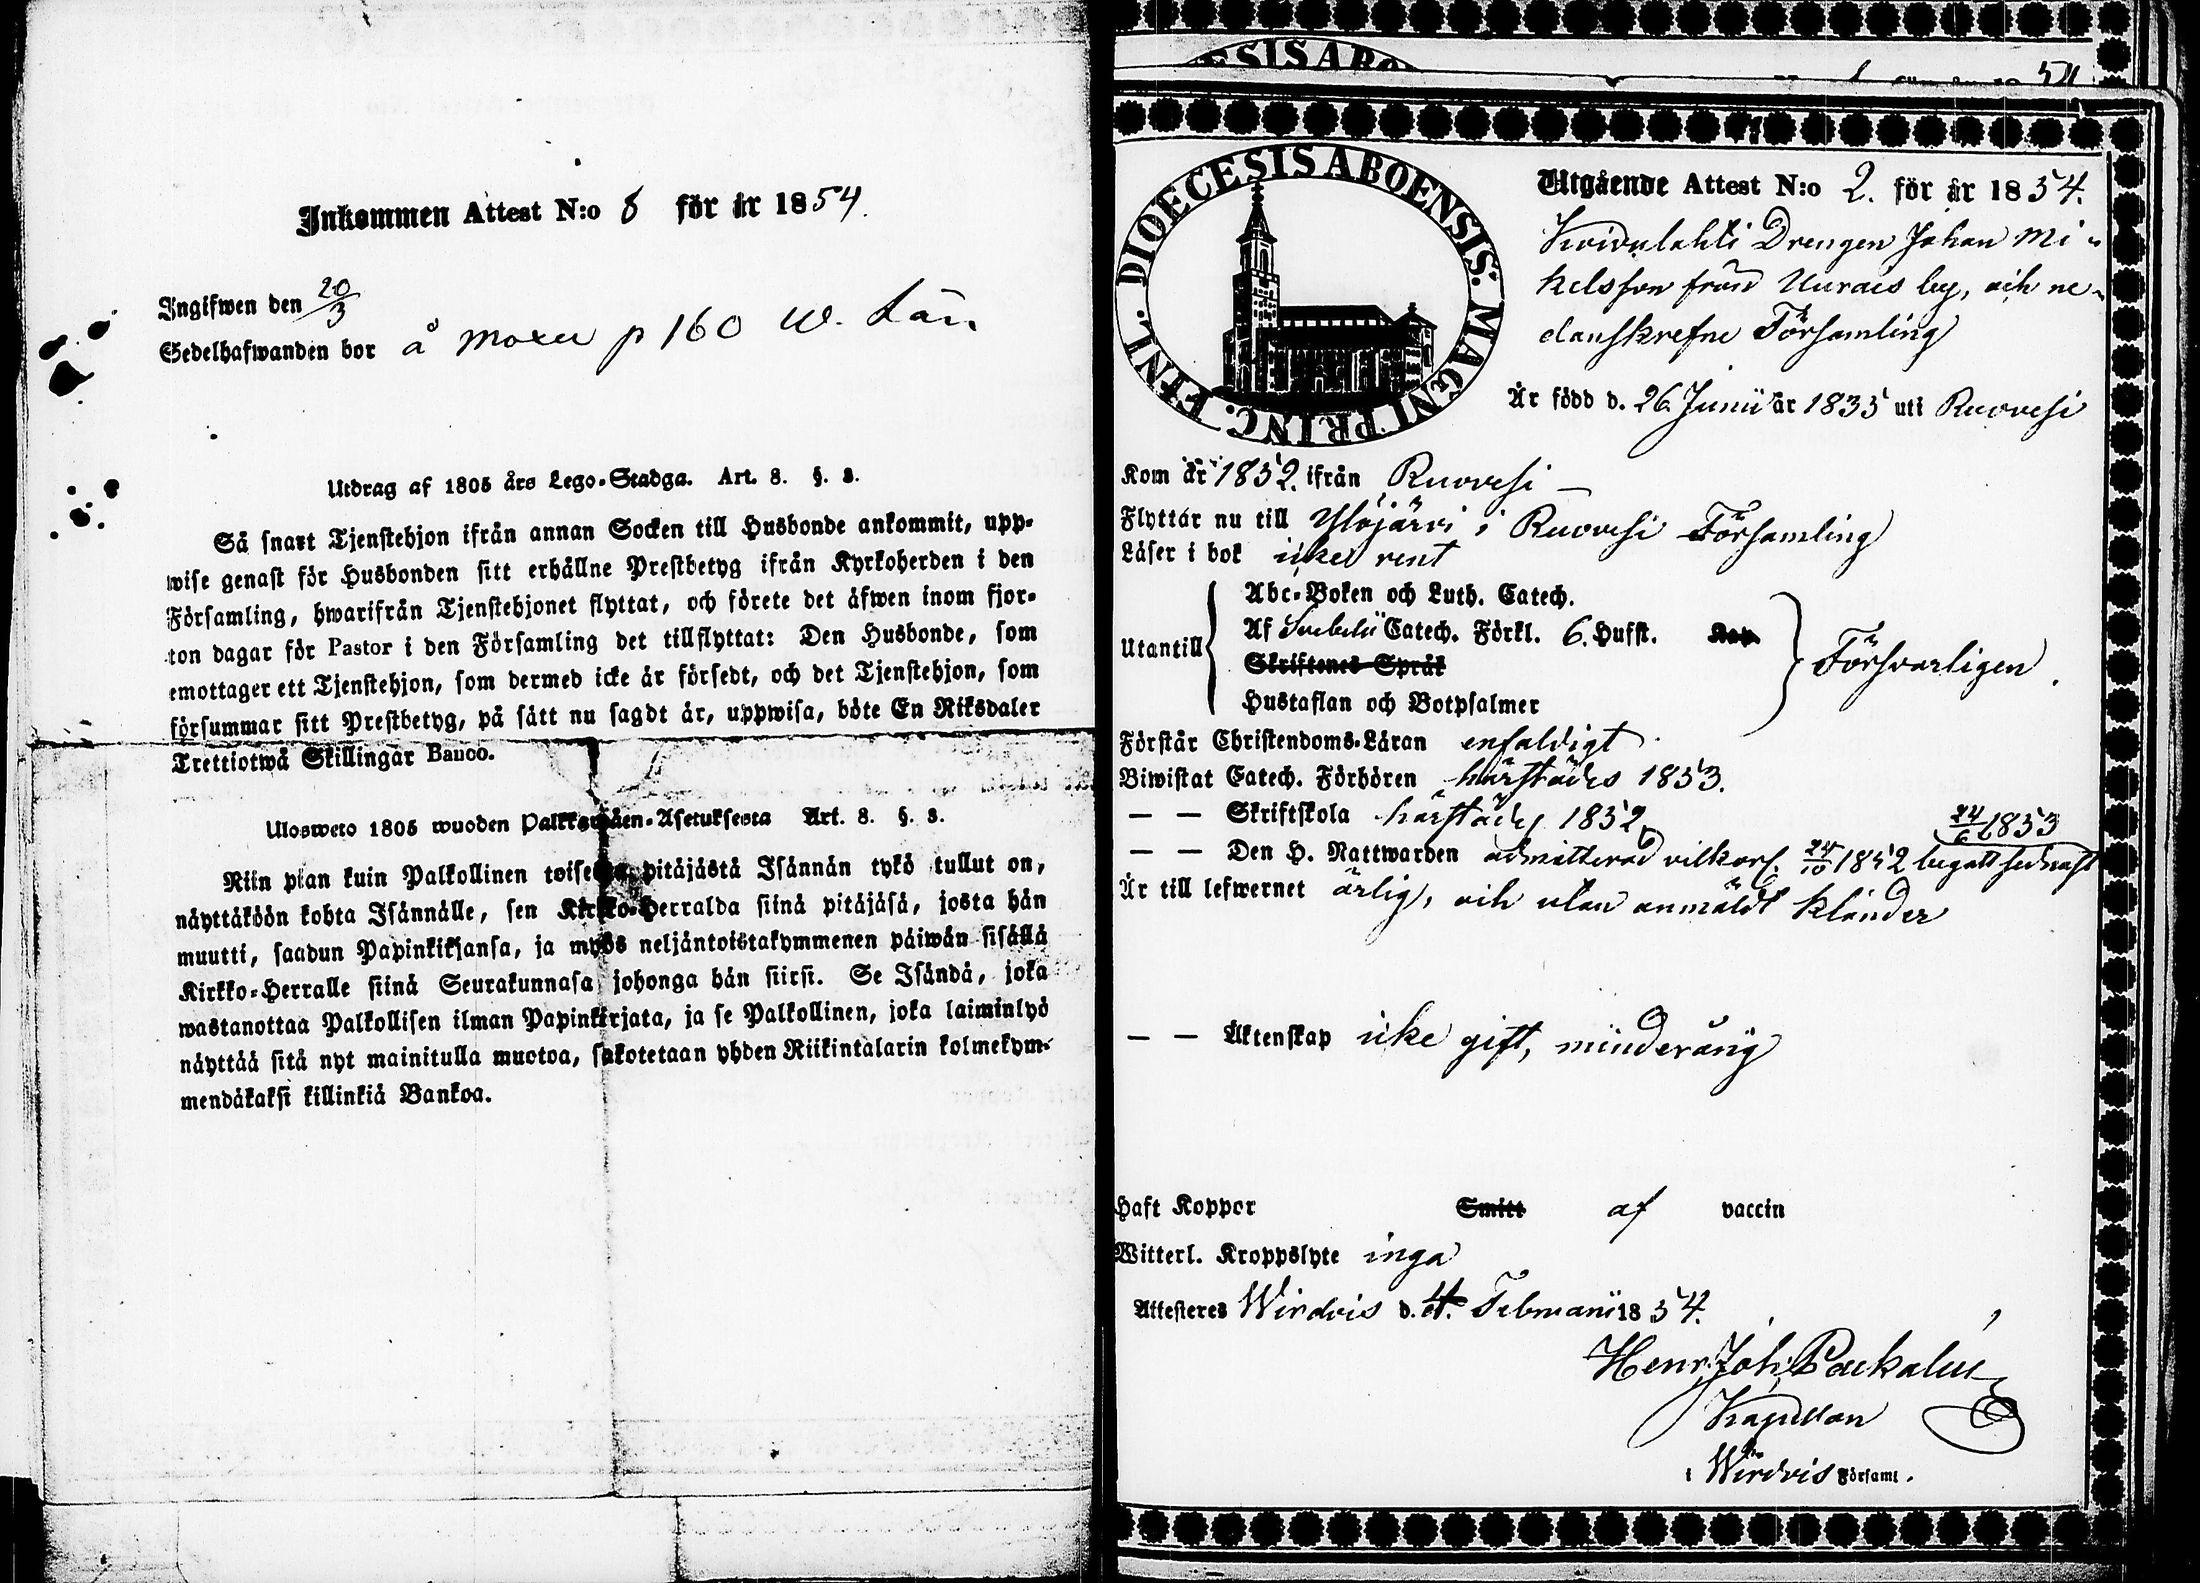 Inkommen Attest N:o 8 för år 1854.
Ingifwen den 20/3
Sedelhafwanden bor å p 160 W. Län
Utdrag af 1805 års Lego-Stadga. Art. 8. §. 3.
Så snart Tjenstehjon ifrån annan Socken till Husbonde ankommit, upp-
wise genast för Husbonden sitt erhållne Prestbetyg ifrån Kyrkoherden i den
Församling, hwarifrån Tjenstehjonet flyttat, och förete det äfwen inom fjor-
ton dagar för Pastor i den Församling det tillflyttat: Den Husbonde, som
emottager ett Tjenstehjon, som dermed icke är försedt, och det Tjenstehjon, som
försummar sitt Prestbetyg, på sätt nu sagdt är, uppwisa, böte En Riksdaler
Trettiotwå Skillingar Banco.
Ulosweto 1805 wuoden Palkkawäen-Asetuksesta Art. 8. §. 3.
Niin pian kuin Palkollinen toisesta pitäjästä Isännän tykö tullut on,
näyttäköön kohta Isännälle, sen Kirkko-Herralda siinä pitäjäsä, josta hän
muutti, saadun Papinkirjansa, ja myös neljäntoistakymmenen päiwän sisällä
Kirkko-Herralle siinä Seurakunnasa johonga hän siirsi. Se Isändä, joka
wastanottaa Palkollisen ilman Papinkirjata, ja se Palkollinen, joka laiminlyö
näyttää sitä nyt mainitulla muotoa, sakotetaan yhden Riikintalarin kolmekym-
mendäkaksi killinkiä Bankoa.
ESIS ABO
54
DIOECESIS ABOENSIS. MAGNI PRINC. FINL.
Utgående Attest N:o 2. för år 1854.
Koivulahti Drengen Johan Mi-
kelsson från Uurais by, och ne-
danskrefne Församling
Är född d. 26 Junii år 1835 uti Ruovesi
Kom år 1852. ifrån Ruovesi —
Flyttar nu till Ylöjärvi i Ruovesi Församling
Läser i bok icke rent
Utantill
Abc-Boken och Luth. Catech.
Af Svebelii Catech. Förkl. 6. Hufst. Kap.
Skriftenes Språk
Hustaflan och Botpsalmer
Försvarligen.
Förstår Christendoms-Läran enfaldigt
Biwistat Catech. Förhören härstädes 1853.
— — Skriftskola härstädes 1852
24/6 1853
— — Den H. Nattwarden admitterad vilkorl. 24/10 1852 begått sednast
Är till lefwernet ärlig, och utan anmäldt klander
— — Äktenskap icke gift, minderårig
Haft Koppor Smitt af vaccin
Witterl. Kroppslyte inga
Attesteres Wirdois d. 4. Februarii 1854.
Henr. Joh. Packalén
Kapellan
i Wirdois Församl.